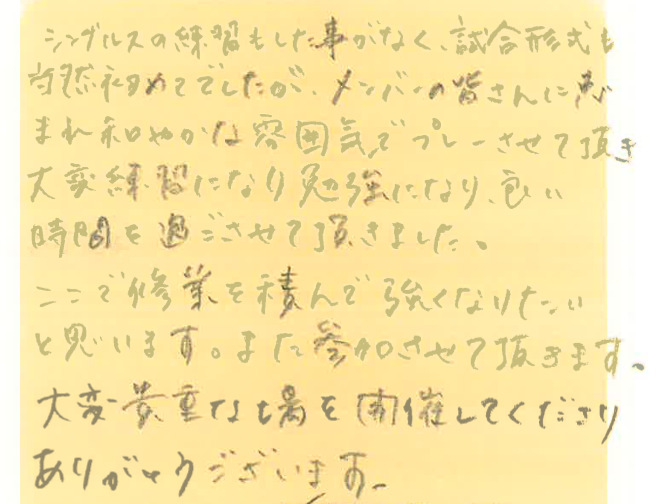 シングルスの練習もした事がなく、試合形式も
当然初めてでしたが、メンバーの皆さんに恵
まれ和やかな雰囲気でプレーさせて頂き
大変練習になり勉強になり、良い
時間を過ごさせて頂きました。
ここで修業を積んで強くなりたい
と思います。また参加させて頂きます。
大変貴重な場を開催してくださり
ありがとうございます。